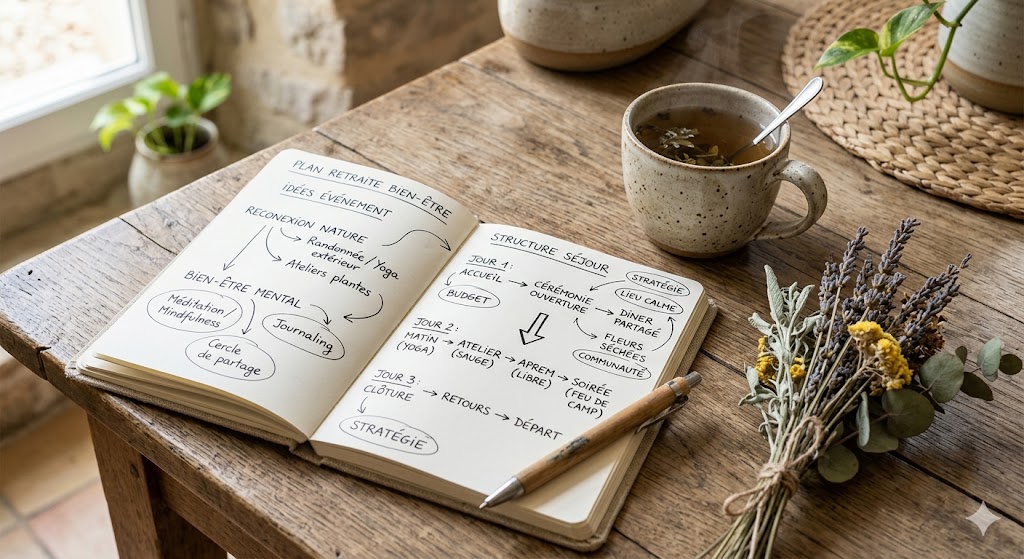 PLAN RETRAITE BIEN-ÊTRE
IDÉES ÉVÉNEMENT
RECONEXION NATURE
Randonnée/Yoga
extérieur
Ateliers plantes
BIEN-ÊTRE MENTAL
Méditation/
Mindfulness
Journaling
Cercle
de partage
STRUCTURE SÉJOUR
JOUR 1:
ACCUEIL → CÉRÉMONIE
OUVERTURE → DÎNER
PARTAGÉ
STRATÉGIE
LIEU CALME
BUDGET
FLEURS
SÉCHÉES
COMMUNAUTÉ
JOUR 2:
MATIN → ATELIER → APREM → SOIRÉE
(YOGA) (SAUGE) (LIBRE) (FEU DE
CAMP)
JOUR 3:
CLÔTURE → RETOURS → DÉPART
STRATÉGIE